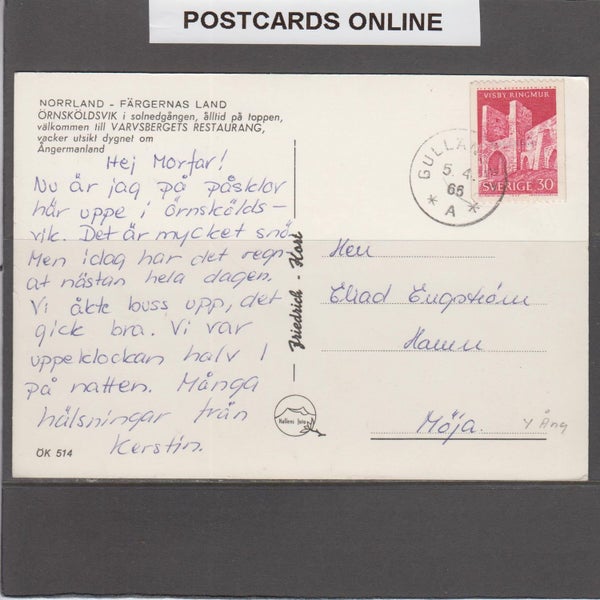 POSTCARDS ONLINE
NORRLAND - FÄRGERNAS LAND
ÖRNSKÖLDSVIK i solnedgången, ålltid på toppen,
välkommen till VARVSBERGETS RESTAURANG,
vacker utsikt dygnet om
Ångermanland
Hej Morfar!
Nu är jag på påsklov
här uppe i Örnskölds-
vik. Det är mycket snö
Men idag har det regn-
at nästan hela dagen.
Vi åkte buss upp, det
gick bra. Vi var
uppe klockan halv 1
på natten. Många
hälsningar från
Kerstin.
ÖK 514
Friedrich - Kort
Hallens foto
VISBY RINGMUR
SVERIGE 30
GULLÄN
5. 4.
66
* A *
Herr
Eliad Engström
Hamn
Möja.
Y Ång